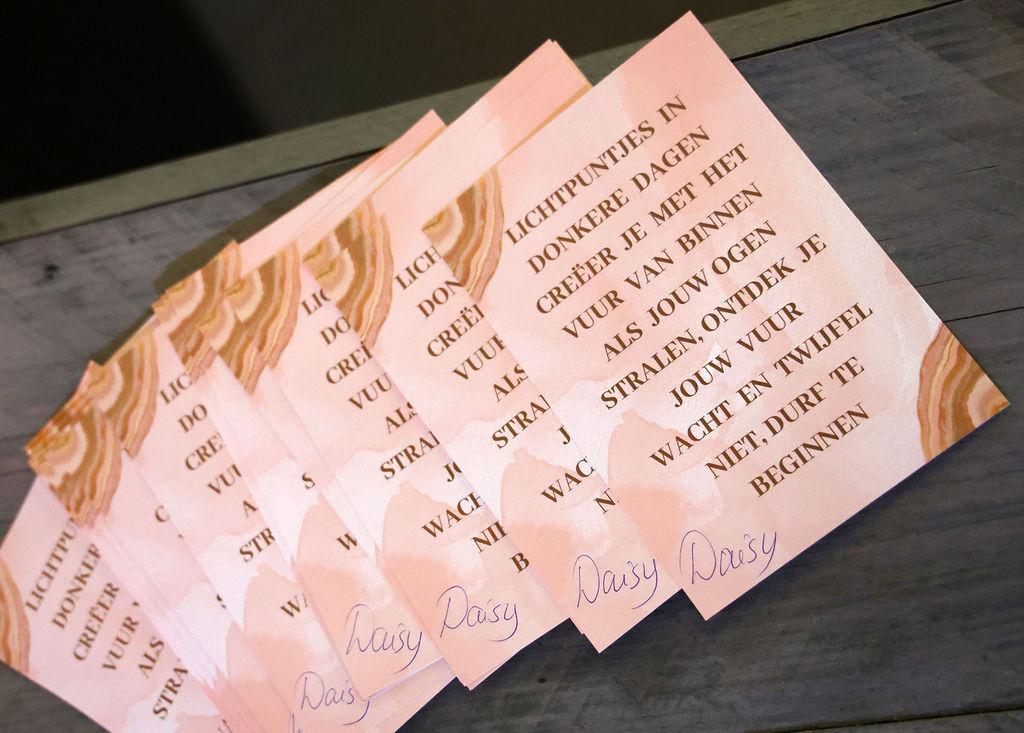 LICHTPUNTJES IN
DONKERE DAGEN
CREËER JE MET HET
VUUR VAN BINNEN
ALS JOUW OGEN
STRALEN, ONTDEK JE
JOUW VUUR
WACHT EN TWIJFEL
NIET, DURF TE
BEGINNEN
Daisy
LICH
DON
CREËI
VUUR
ALS
STRAI
J
WAC
N
Daisy
LIC
DO
CREË
VUU
ALS
STRA
JO
WACH
NIE
B
Daisy
LIC
DO
CRE
VU
A
STR
S
W
WI
Daisy
Dais
LICHTPU
DONKER
CREËER
VUUR
ALS
STRA